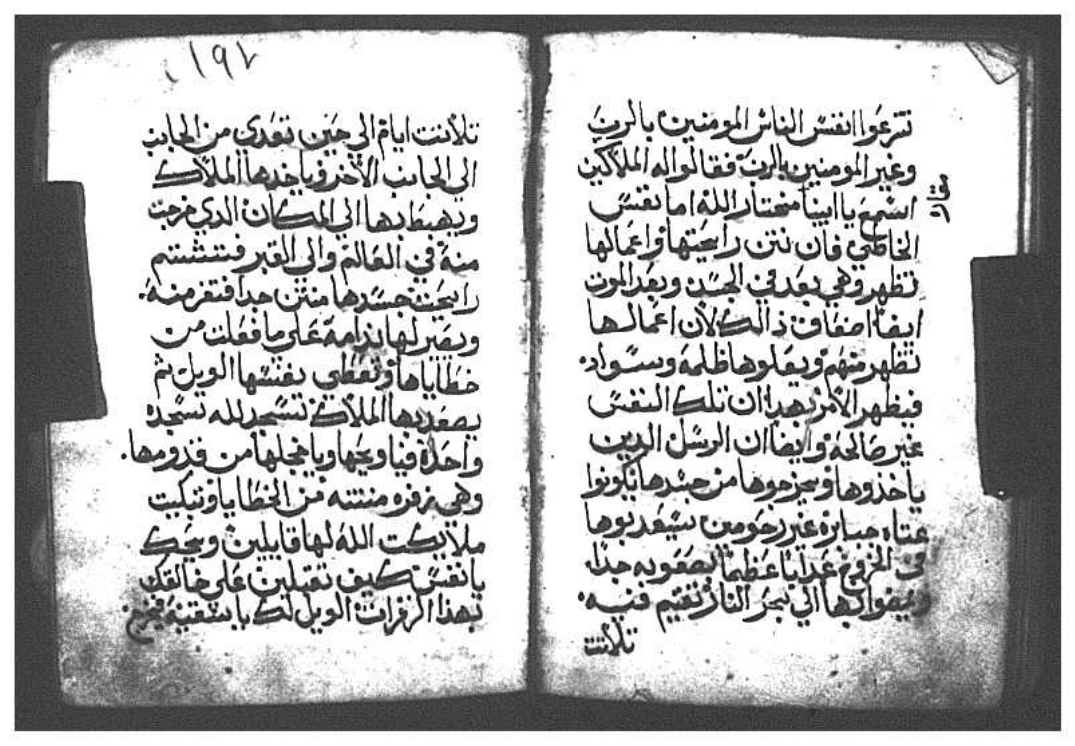 تنزعوا انفس الناس المومنين بالرب
وغير المومنين بالرب فقالوا له الملاكين
اسمع يا ابينا مختار الله اما نفس
الخاطي فان نتن رايحتها واعمالها
تظهر وهي بعد في الجسد وبعد الموت
ايضا اضعاف ذالك لان اعمالها
تظهر منهم ويعلوها ظلمه وسواد.
فيظهر الامر بهدا ان تلك النفس
غير صالحه وايضا ان الرسل الدين
ياخدوها ويخرجوها من جسدها يكونوا
عتاه جبابره غير رحومين يعدبوها
في الخروج عدابا عظيما بصعوبه جدا.
بها الي بحر النار تقيم فيه.
تلاتت
١٩٢
تلاتت ايام الي حين تعدي من الجانب
الي الجانب الاخر وياخدها الملاك
ويهبط بها الي المكان الدي خرجت
منه في العالم والي القبر فتشتم
رايحت جسدها منتن جدا فتفزع منه.
ويصير لها ندامه علي ما فعلت من
خطاياها وتعطي نفسها الويل ثم
يصعد بها الملاك تسجد لله سجده
واحده فيا ويحها ويا خجلها من قدومها.
وهي زفره منتنه من الخطايا وتبكيت
ملايكت الله لها قايلين ويحك
يا نفس كيف تقبلين علي خالقك
بهدا الزفرات الويل لك يا شقيه